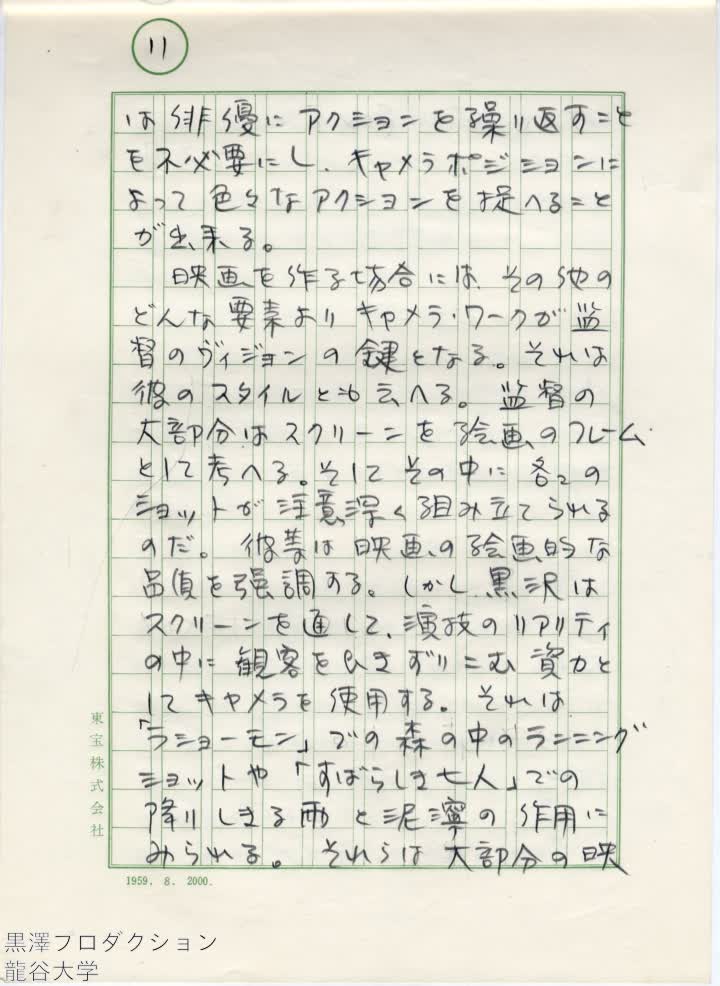 11
は俳優にアクションを繰り返すこと
を不必要にし、キャメラポジションに
よって色々なアクションを捉へること
が出来る。
映画を作る場合には、その他の
どんな要素よりキャメラ・ワークが監
督のヴィジョンの鍵となる。それは
彼のスタイルとも云へる。監督の
大部分はスクリーンを絵画のフレーム
として考へる。そしてその中に各々の
ショットが注意深く組み立てられる
のだ。彼等は映画の絵画的な
品質を強調する。しかし黒沢は
スクリーンを通して、演技のリアリティ
の中に観客をひきずりこむ資力と
してキャメラを使用する。それは
「ラショーモン」での森の中のランニング
ショットや「すばらしき七人」での
降りしきる雨と泥濘の作用に
みられる。それらは大部分の映
東宝株式会社
1959. 8. 2000.
黒澤プロダクション
龍谷大学